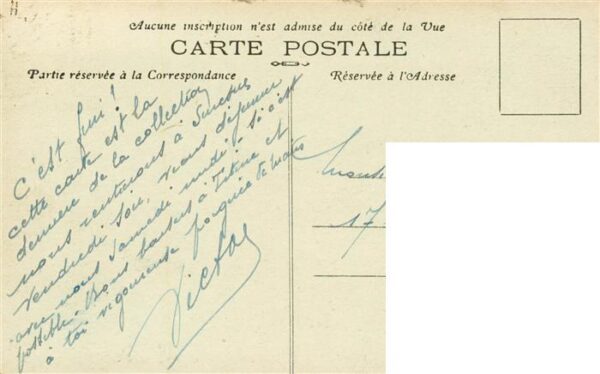 Aucune inscription n'est admise du côté de la Vue
CARTE POSTALE
Partie réservée à la Correspondance
Réservée à l'Adresse
C'est fini !
cette carte est la
dernière de la collection
nous rentrerons à Suresnes
vendredi soir, viens déjeuner
avec nous samedi midi - si c'est
possible. Bons baisers à Titine et
à toi vigoureuse poignée de mains
Victor
17